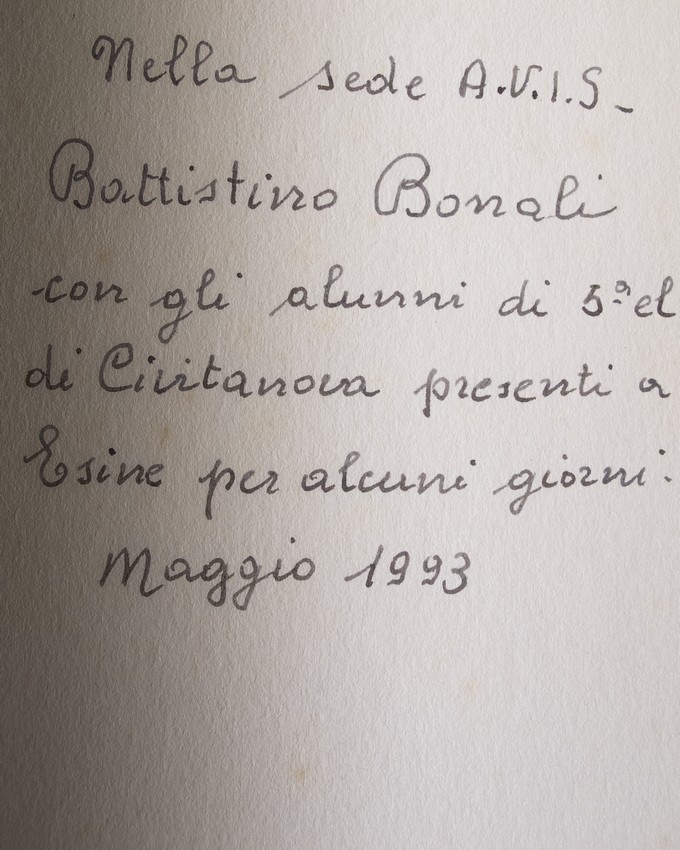 Nella sede A.V.I.S_
Battistino Bonali
-con gli alunni di 5ª el
di Civitanova presenti a
Esine per alcuni giorni.
Maggio 1993